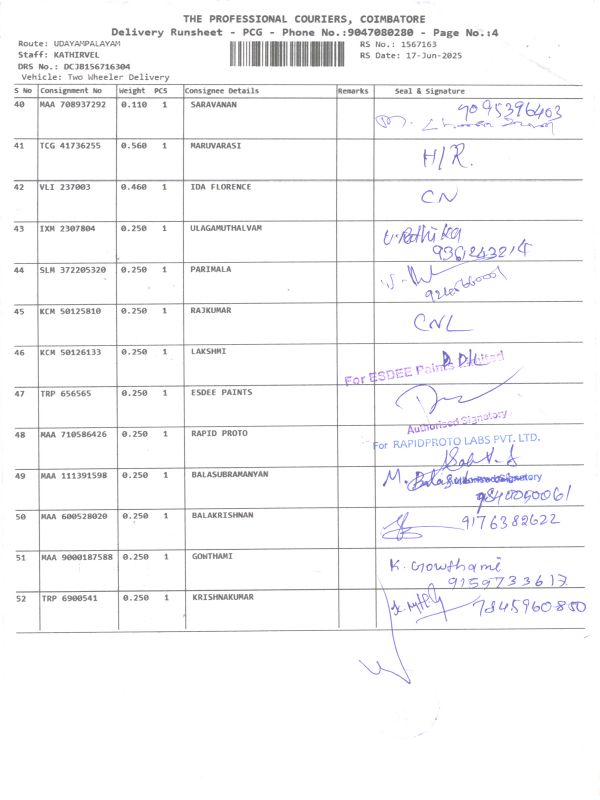 THE PROFESSIONAL COURIERS, COIMBATORE
Delivery Runsheet - PCG - Phone No.:9047080280 - Page No.:4
Route: UDAYAMPALAYAM RS No.: 1567163
Staff: KATHIRVEL RS Date: 17-Jun-2025
DRS No.: DCJB156716304
Vehicle: Two Wheeler Delivery
S No Consignment No Weight PCS Consignee Details Remarks Seal & Signature
40 MAA 708937292 0.110 1 SARAVANAN 9095396403
41 TCG 41736255 0.560 1 MARUVARASI H/R.
42 VLI 237003 0.460 1 IDA FLORENCE CN
43 IXM 2307804 0.250 1 ULAGAMUTHALVAM U. Radhika
9361243214
44 SLM 372205320 0.250 1 PARIMALA
45 KCM 50125810 0.250 1 RAJKUMAR CNL
46 KCM 50126133 0.250 1 LAKSHMI D/L
For ESDEE Paints Limited
47 TRP 656565 0.250 1 ESDEE PAINTS
Authorised Signatory
48 MAA 710586426 0.250 1 RAPID PROTO For RAPIDPROTO LABS PVT. LTD.
49 MAA 111391598 0.250 1 BALASUBRAMANYAN M. Balasu
9840050061
50 MAA 600528020 0.250 1 BALAKRISHNAN 9176382622
51 MAA 9000187588 0.250 1 GOWTHAMI K. Gowthami
9159733617
52 TRP 6900541 0.250 1 KRISHNAKUMAR 7845960850